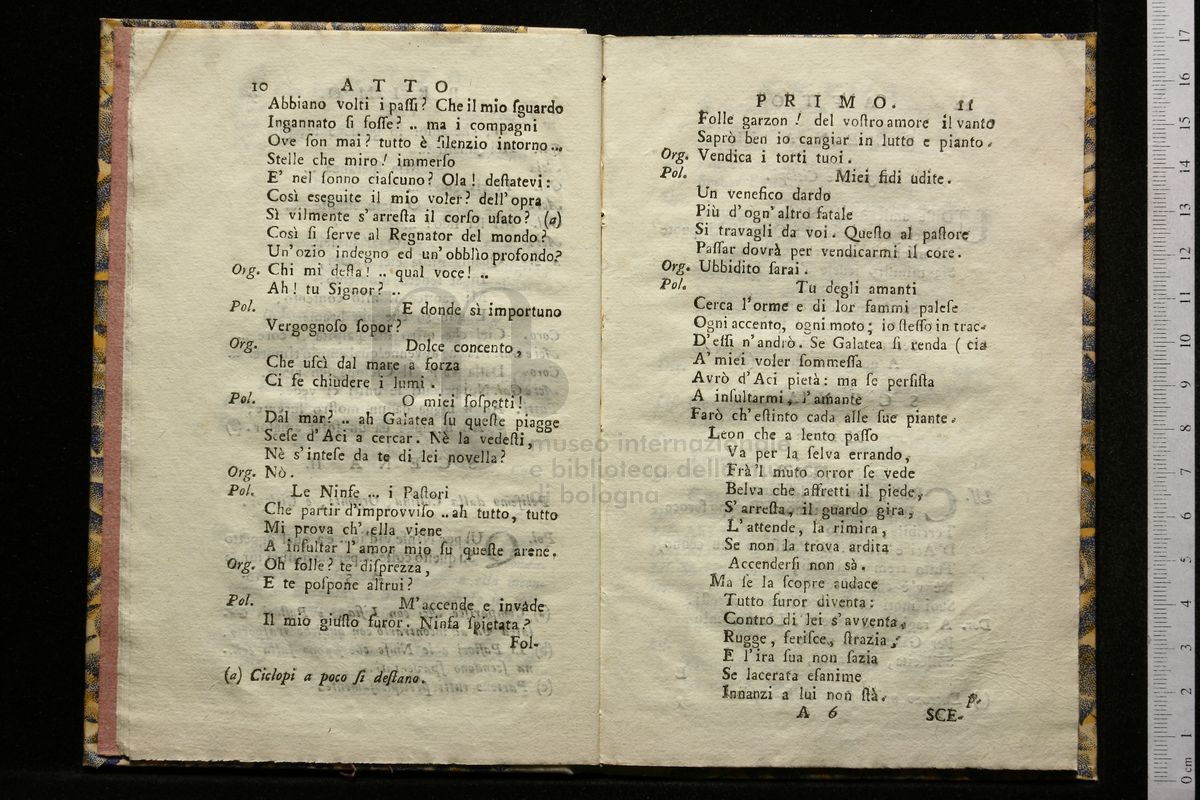 10 ATTO
Abbiano volti i paſſi? Che il mio ſguardo
Ingannato ſi foſſe? .. ma i compagni
Ove ſon mai? tutto è ſilenzio intorno...
Stelle che miro! immerſo
E' nel ſonno ciaſcuno? Ola! deſtatevi:
Così eseguite il mio voler? dell'opra
Sì vilmente s'arreſta il corſo uſato? (a)
Così ſi ſerve al Regnator del mondo?
Un'ozio indegno ed un'obblìo profondo?
Org. Chi mi deſta! .. qual voce! ..
Ah! tu Signor? ..
Pol. E donde sì importuno
Vergognoſo ſopor?
Org. Dolce concento,
Che uſcì dal mare a forza
Ci fe chiudere i lumi.
Pol. O miei ſoſpetti!
Dal mar? .. ah Galatea ſu queſte piagge
Sceſe d'Aci a cercar. Nè la vedeſti,
Nè s'inteſe da te di lei novella?
Org. Nò.
Pol. Le Ninfe ... i Paſtori
Che partir d'improvviſo .. ah tutto, tutto
Mi prova ch'ella viene
A inſultar l'amor mio ſu queſte arene.
Org. Oh folle? te diſprezza,
E te poſpone altrui?
Pol. M'accende e invade
Il mio giuſto furor. Ninfa ſpietata?
Fol-
(a) Ciclopi a poco ſi deſtano.
PRIMO. 11
Folle garzon! del voſtro amore il vanto
Saprò ben io cangiar in lutto e pianto.
Org. Vendica i torti tuoi.
Pol. Miei fidi udite.
Un venefico dardo
Più d'ogn'altro fatale
Si travagli da voi. Queſto al paſtore
Paſſar dovrà per vendicarmi il core.
Org. Ubbidito ſarai.
Pol. Tu degli amanti
Cerca l'orme e di lor fammi paleſe
Ogni accento, ogni moto; io ſteſſo in trac-
D'eſſi n'andrò. Se Galatea ſi renda ( cia
A' miei voler ſommeſſa
Avrò d'Aci pietà: ma ſe perſiſta
A inſultarmi, l'amante
Farò ch'eſtinto cada alle ſue piante.
Leon che a lento paſſo
Va per la ſelva errando,
Frà'l muto orror ſe vede
Belva che affretti il piede,
S'arreſta, il guardo gira,
L'attende, la rimira,
Se non la trova ardita
Accenderſi non sà.
Ma ſe la ſcopre audace
Tutto furor diventa:
Contro di lei s'avventa,
Rugge, feriſce, ſtrazia;
E l'ira ſua non ſazia
Se lacerata eſanime
Innanzi a lui non ſtà.
p.
A 6 SCE-
museo internazionale
e biblioteca della
di bologna
0 cm 1 2 3 4 5 6 7 8 9 10 11 12 13 14 15 16 17